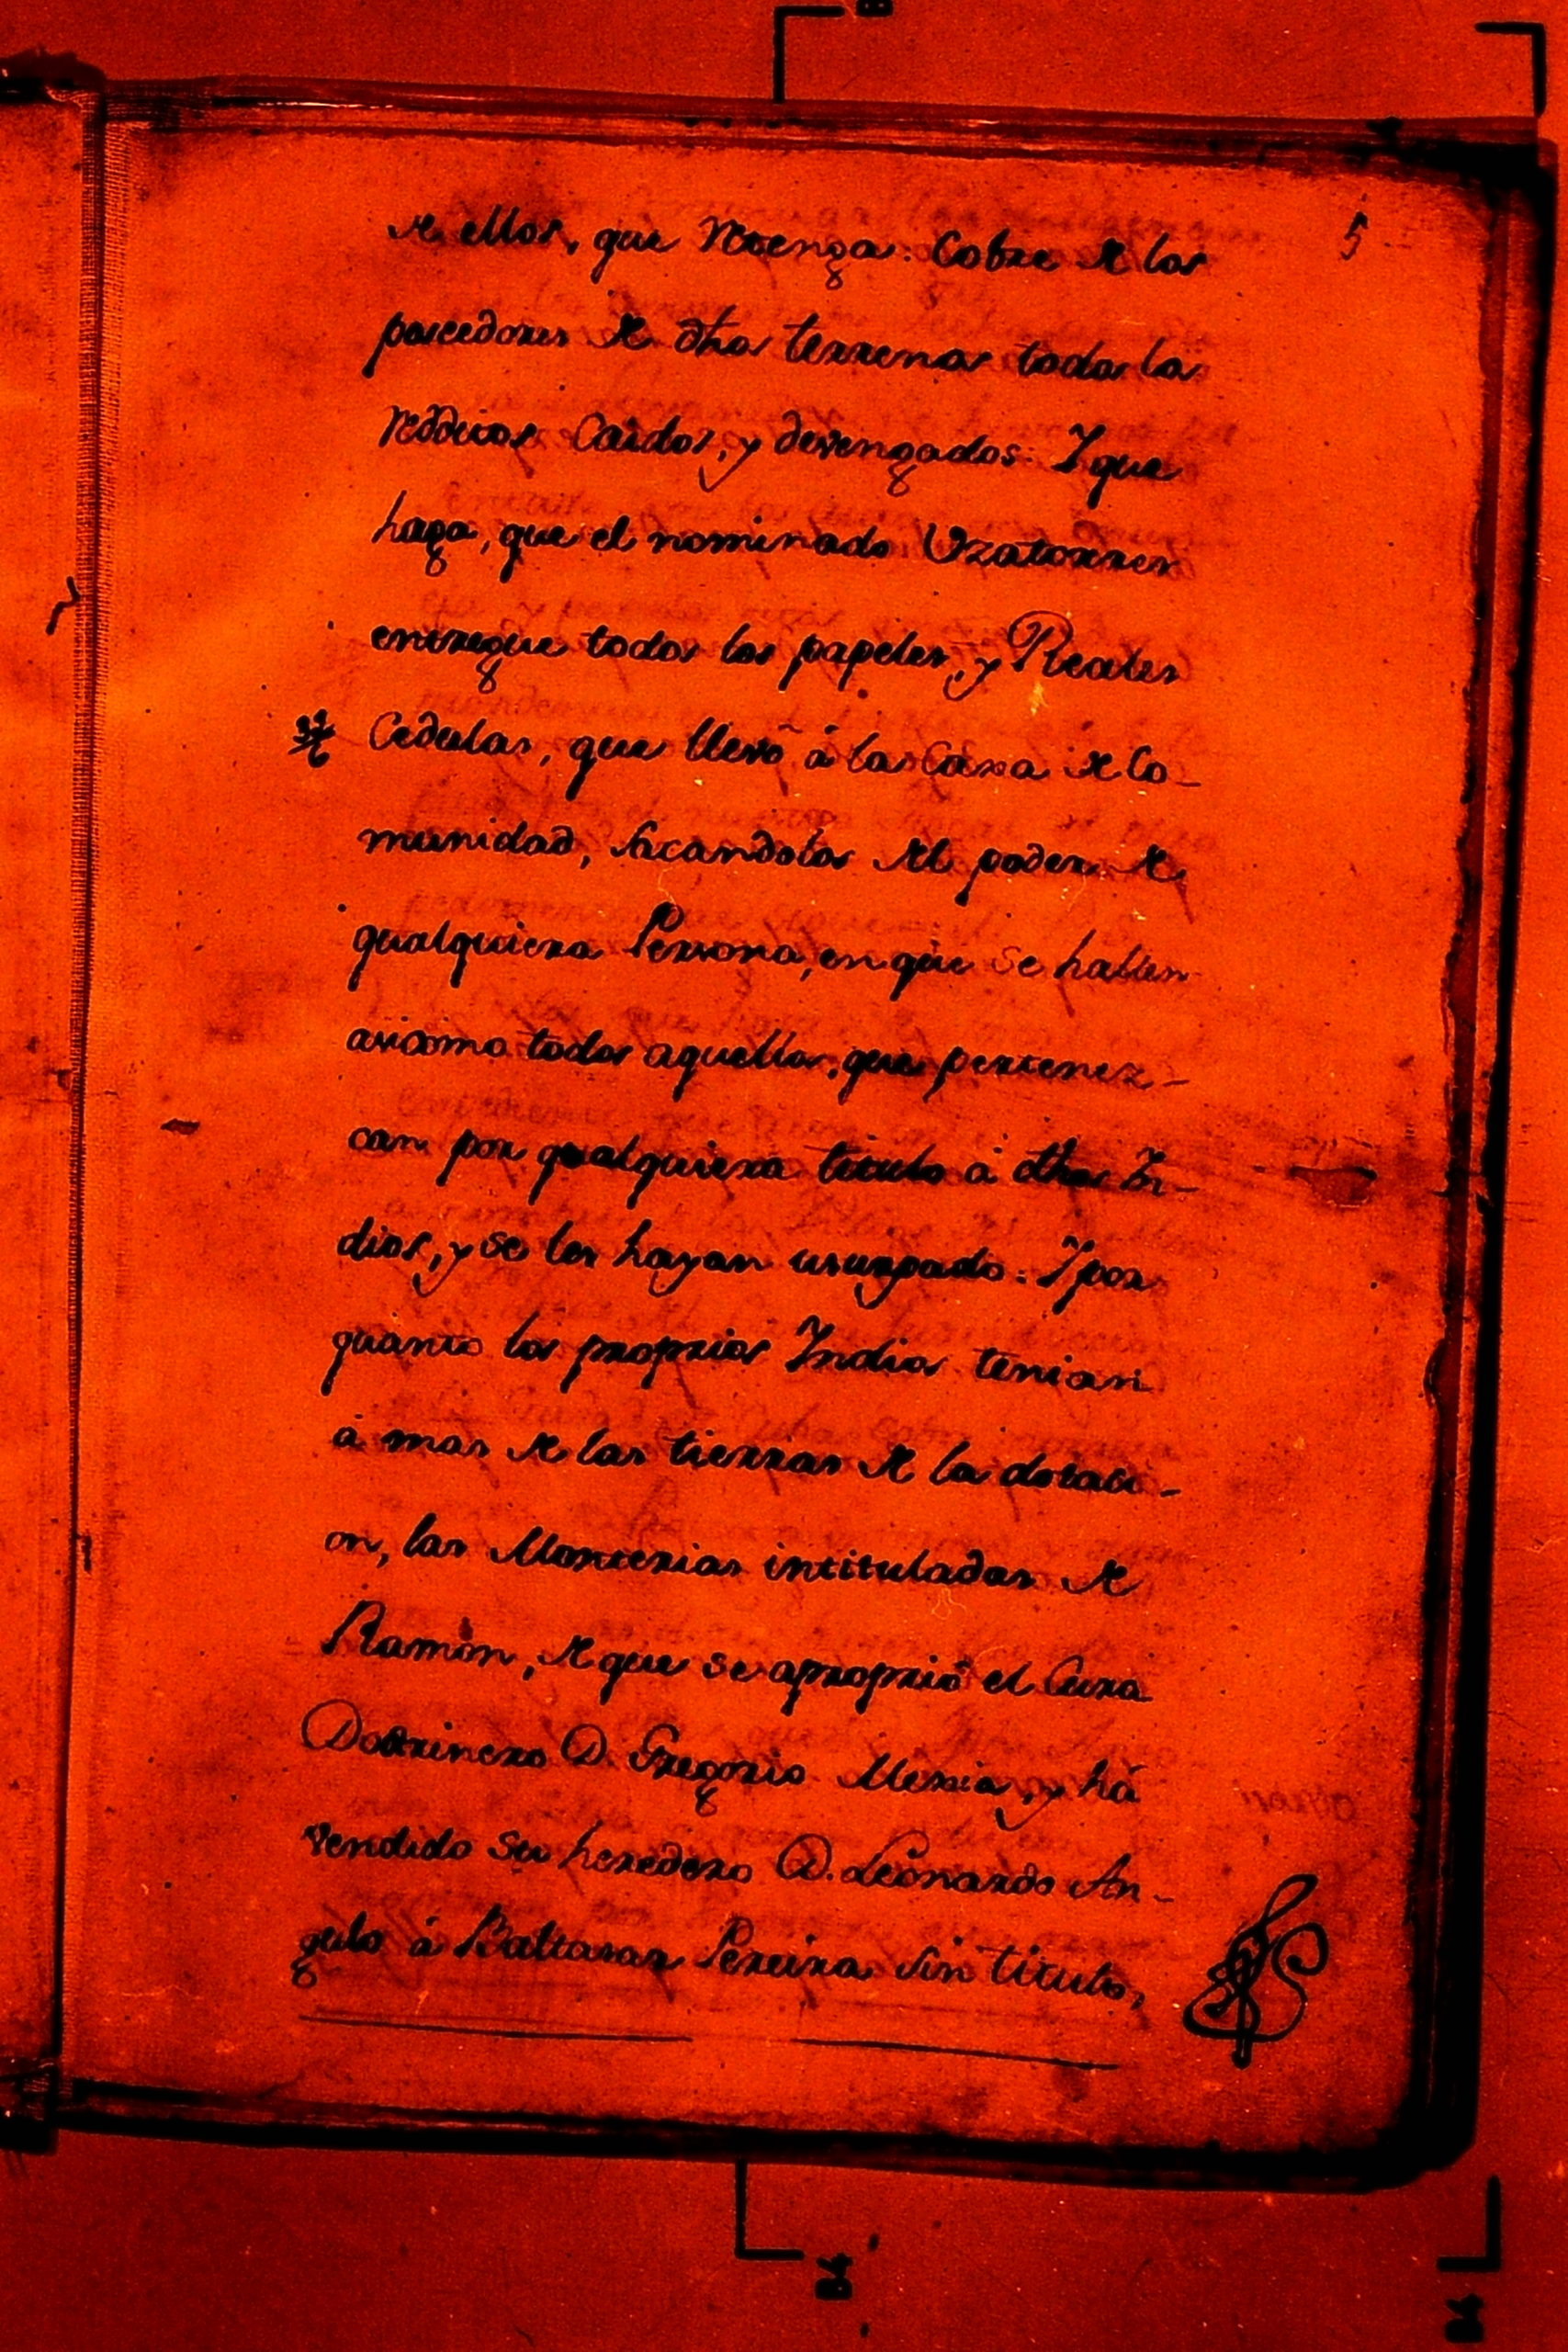 5
de ellos, que retenga. Cobre de los
poseedores de dhos terrenos todos los
rédditos Caidos, y devengados. Y que
haga, que el nominado Uzatorres
entregue todos los papeles, y Reales
Cedulas, que llevó á la Caxa de Co-
munidad, sacandolos del poder de
qualquiera Persona, en que se hallen
asicomo todos aquellos, que pertenez-
can por qualquiera titulo á dhos In-
dios, y se les hayan usurpado: Y por
quanto los proprios Indios tenian
á mas de las tierras de la dotaci-
on, las Monterias intituladas de
Ramòn, de que se aproprió el Cura
Doctrinero D. Gregorio Mexia, y há
vendido su heredero D. Leonardo An-
gulo á Baltasar Pereira sin titulo,